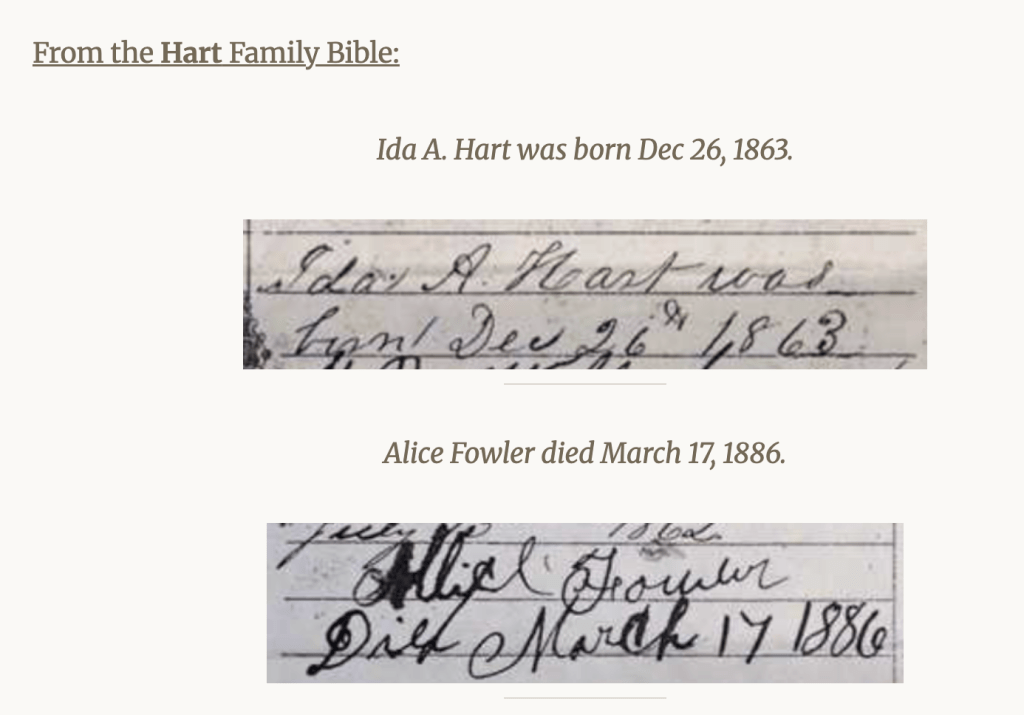 From the Hart Family Bible:
Ida A. Hart was born Dec 26, 1863.
Ida A. Hart was
born Dec 26th 1863
Alice Fowler died March 17, 1886.
July 1862.
Allice Fowler
Died March 17 1886